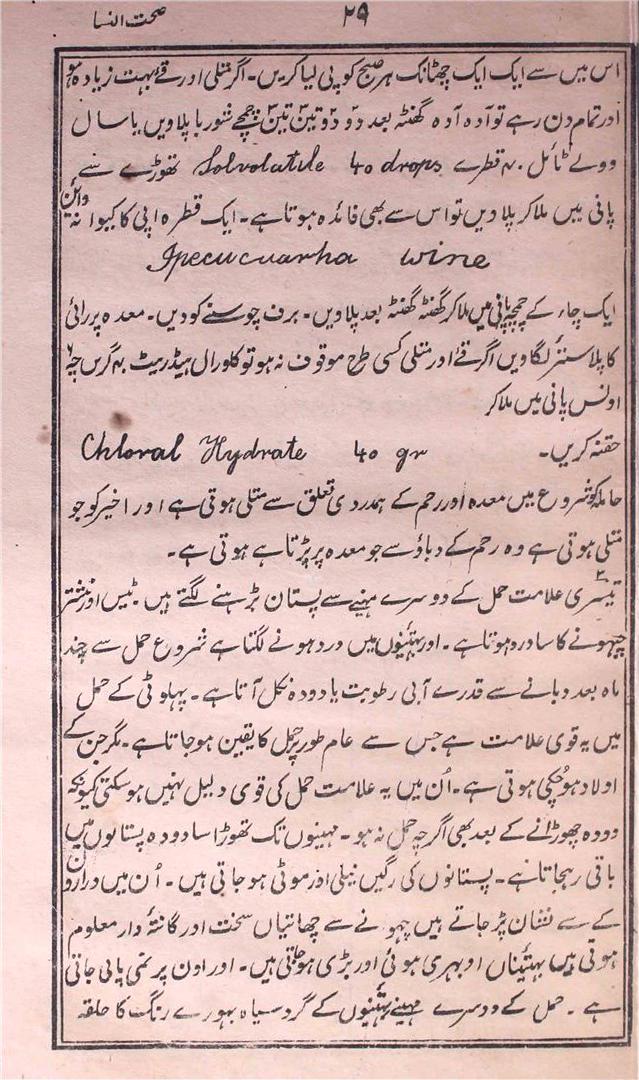 ۲۹ صحت النسا
اس میں سے ایک ایک چھٹانک ہر صبح کو پی لیا کریں۔ اگر متلی اور قے بہت زیادہ ہو
اور تمام دن رہے تو آدہ آدہ گھنٹہ بعد دو دو تین تین چمچے شوربا پلاویں یا سال
وولے ٹائل ۴۰ قطرے Solvolatile 40 drops تھوڑے سے
پانی میں ملا کر پلا دیں تو اس سے بھی فائدہ ہوتا ہے۔ ایک قطرہ اپی کاکیوا نہ وائین
Ipecucuarha wine
ایک چاء کے چمچہ پانی میں ملا کر گھنٹہ گھنٹہ بعد پلاویں۔ برف چوسنے کو دیں۔ معدہ پر رائی
کا پلاستر لگاویں اگر قے اور متلی کسی طرح موقوف نہ ہو تو کلورال ہیڈریٹ ۴۰ گرین چھ
اونس پانی میں ملا کر
حقنہ کریں۔ Chloral Hydrate 40 gr
حاملہ کو شروع میں معدہ اور رحم کے ہمدردی تعلق سے متلی ہوتی ہے اور اخیر کو جو
متلی ہوتی ہے وہ رحم کے دباؤ سے جو معدہ پر پڑتا ہے ہوتی ہے۔
تیسری علامت حمل کے دوسرے مہینے سے پستان بڑہنے لگتے ہیں۔ ٹیس اور نشتر
چبہونے کا سا درد ہوتا ہے۔ اور بہٹنیوں میں درد ہونے لگتا ہے شروع حمل سے چند
ماہ بعد دبانے سے قدرے آبی رطوبت یا دودہ نکل آتا ہے۔ پہلوٹی کے حمل
میں یہ قوی علامت ہے جس سے عام طور پر حمل کا یقین ہو جاتا ہے۔ مگر جن کے
اولاد ہو چکی ہوتی ہے۔ اُن میں یہ علامت حمل کی قوی دلیل نہیں ہو سکتی کیونکہ
دودہ چھوڑانے کے بعد بھی اگرچہ حمل نہ ہو۔ مہینوں تک تھوڑا سا دودہ پستانوں میں
باقی رہجاتا ہے۔ پستانوں کی رگیں نیلی اور موٹی ہو جاتی ہیں۔ اُن میں دراروں
کے سے نشان پڑ جاتے ہیں چہونے سے چھاتیاں سخت اور گانٹہ دار معلوم
ہوتی ہیں بہٹنیاں اوبہری ہوئی اور بڑی ہو جاتی ہیں۔ اور اون پر نمی پائی جاتی
ہے۔ حمل کے دوسرے مہینے بہٹنیوں کے گرد سیاہ بہورے رنگت کا حلقہ